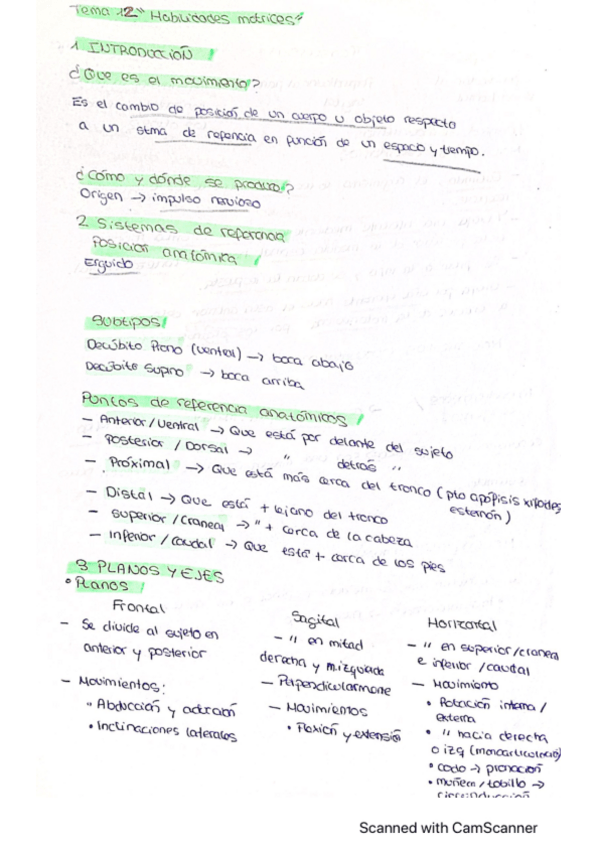 Tema 12 "Habilidades motrices"
1 INTRODUCCIÓN
¿Que es el movimiento?
Es el cambio de posición de un cuerpo u objeto respecto
a un stma de refencia en función de un espacio y tiempo.
¿Cómo y dónde se produce?
Origen → impulso nervioso
2 Sistemas de referencia
Posición anatómica
Erguido
Subtipos
Decúbito Prono (ventral) → boca abajo
Decúbito Supino → boca arriba
Puntos de referencia anatómicos
- Anterior/Ventral → Que está por delante del sujeto
- Posterior / Dorsal → " detrás "
- Próximal → Que está más cerca del tronco (pto apófisis xifoides
esternón)
- Distal → Que está + lejano del tronco
- Superior/Craneal → " + cerca de la cabeza
- Inferior/Caudal → Que está + cerca de los pies
3 PLANOS Y EJES
• Planos
Frontal
- Se divide al sujeto en
anterior y posterior
- Movimientos:
• Abducción y aducción
• Inclinaciones laterales
Sagital
- " en mitad
derecha y izquierda
- Perpendicularmente
- Movimientos
• Flexión y extensión
Horizontal
- " en superior/craneal
e inferior/caudal
- Movimiento
• Rotación interna/
externa
• " hacia derecha
o izq
• codo → pronación
• muñeca/tobillo →
circunducción
Scanned with CamScanner